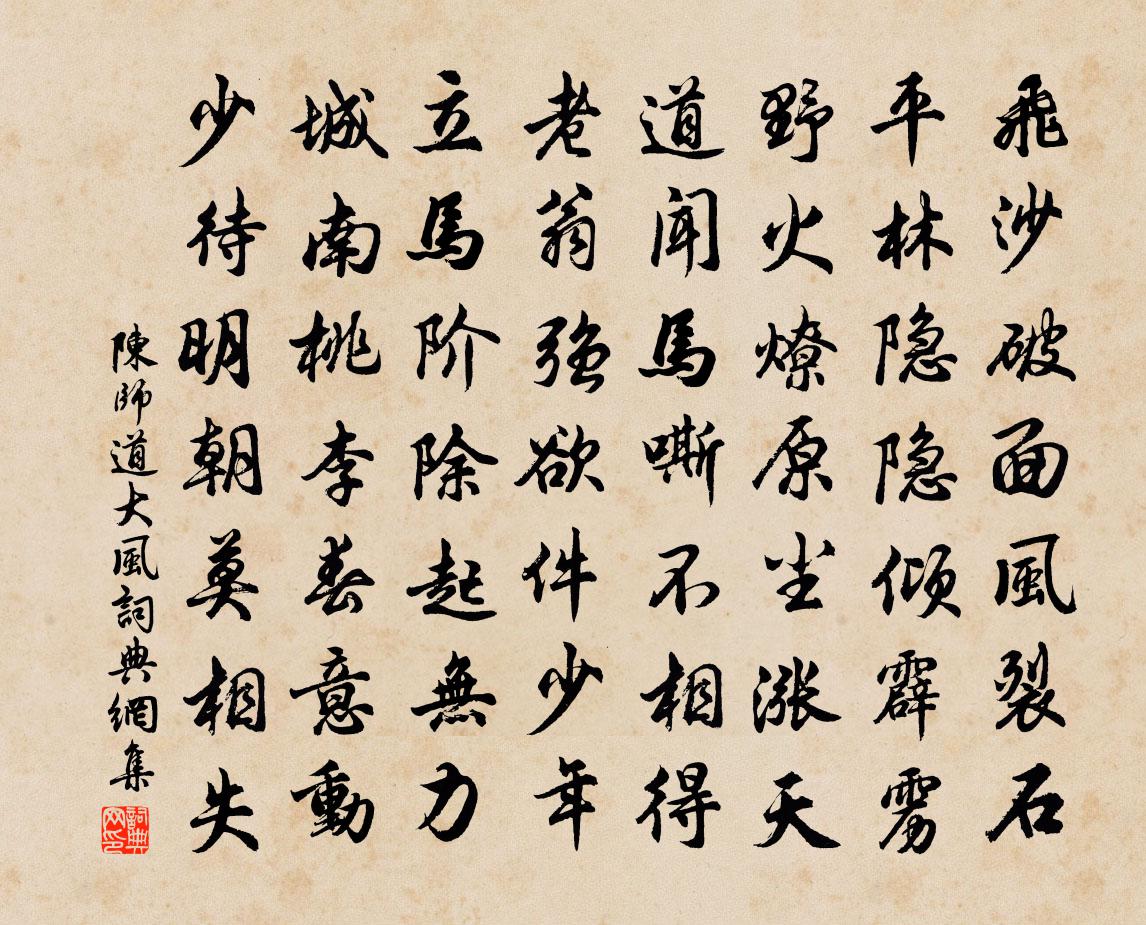 飛沙破面風裂石
平林隐隐倾霹雳
野火燎原尘漲天
道聞馬嘶不相得
老翁强欲伴少年
立馬阶除起無力
城南桃李春意動
少待明朝莫相失
陳師道大風詞典網集
詞典网印